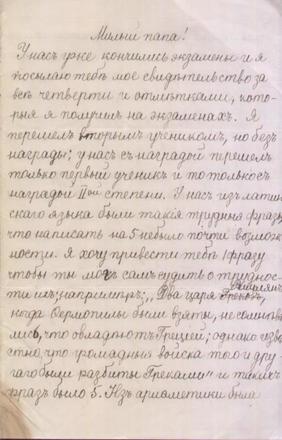 Милый папа!
У насъ уже кончились экзамены и я
посылаю тебѣ мое свидѣтельство за
всѣ четверти и отмѣтками, кото-
рыя я получилъ на экзаменахъ. Я
перешелъ вторымъ ученикомъ, но безъ
награды; у насъ съ наградой перешелъ
только первый ученик и то только съ
наградой II ой степени. У насъ изъ латин
скаго языка были такія трудныя фразы,
что написать на 5 небыло почти возмож
ности. Я хочу привести тебѣ 1 фразу
чтобы ты могъ самъ судить о труднос-
ти ихъ; напримѣръ: „Два царя Грековъ,
когда Ѳермопилы были взяты, не сомнѣва
лись, что овладѣютъ Греціей; однако извѣ
стно, что громадныя войска того и дру-
гаго были разбиты Греками" и такихъ
фразъ было 5. Изъ ариѳметики была